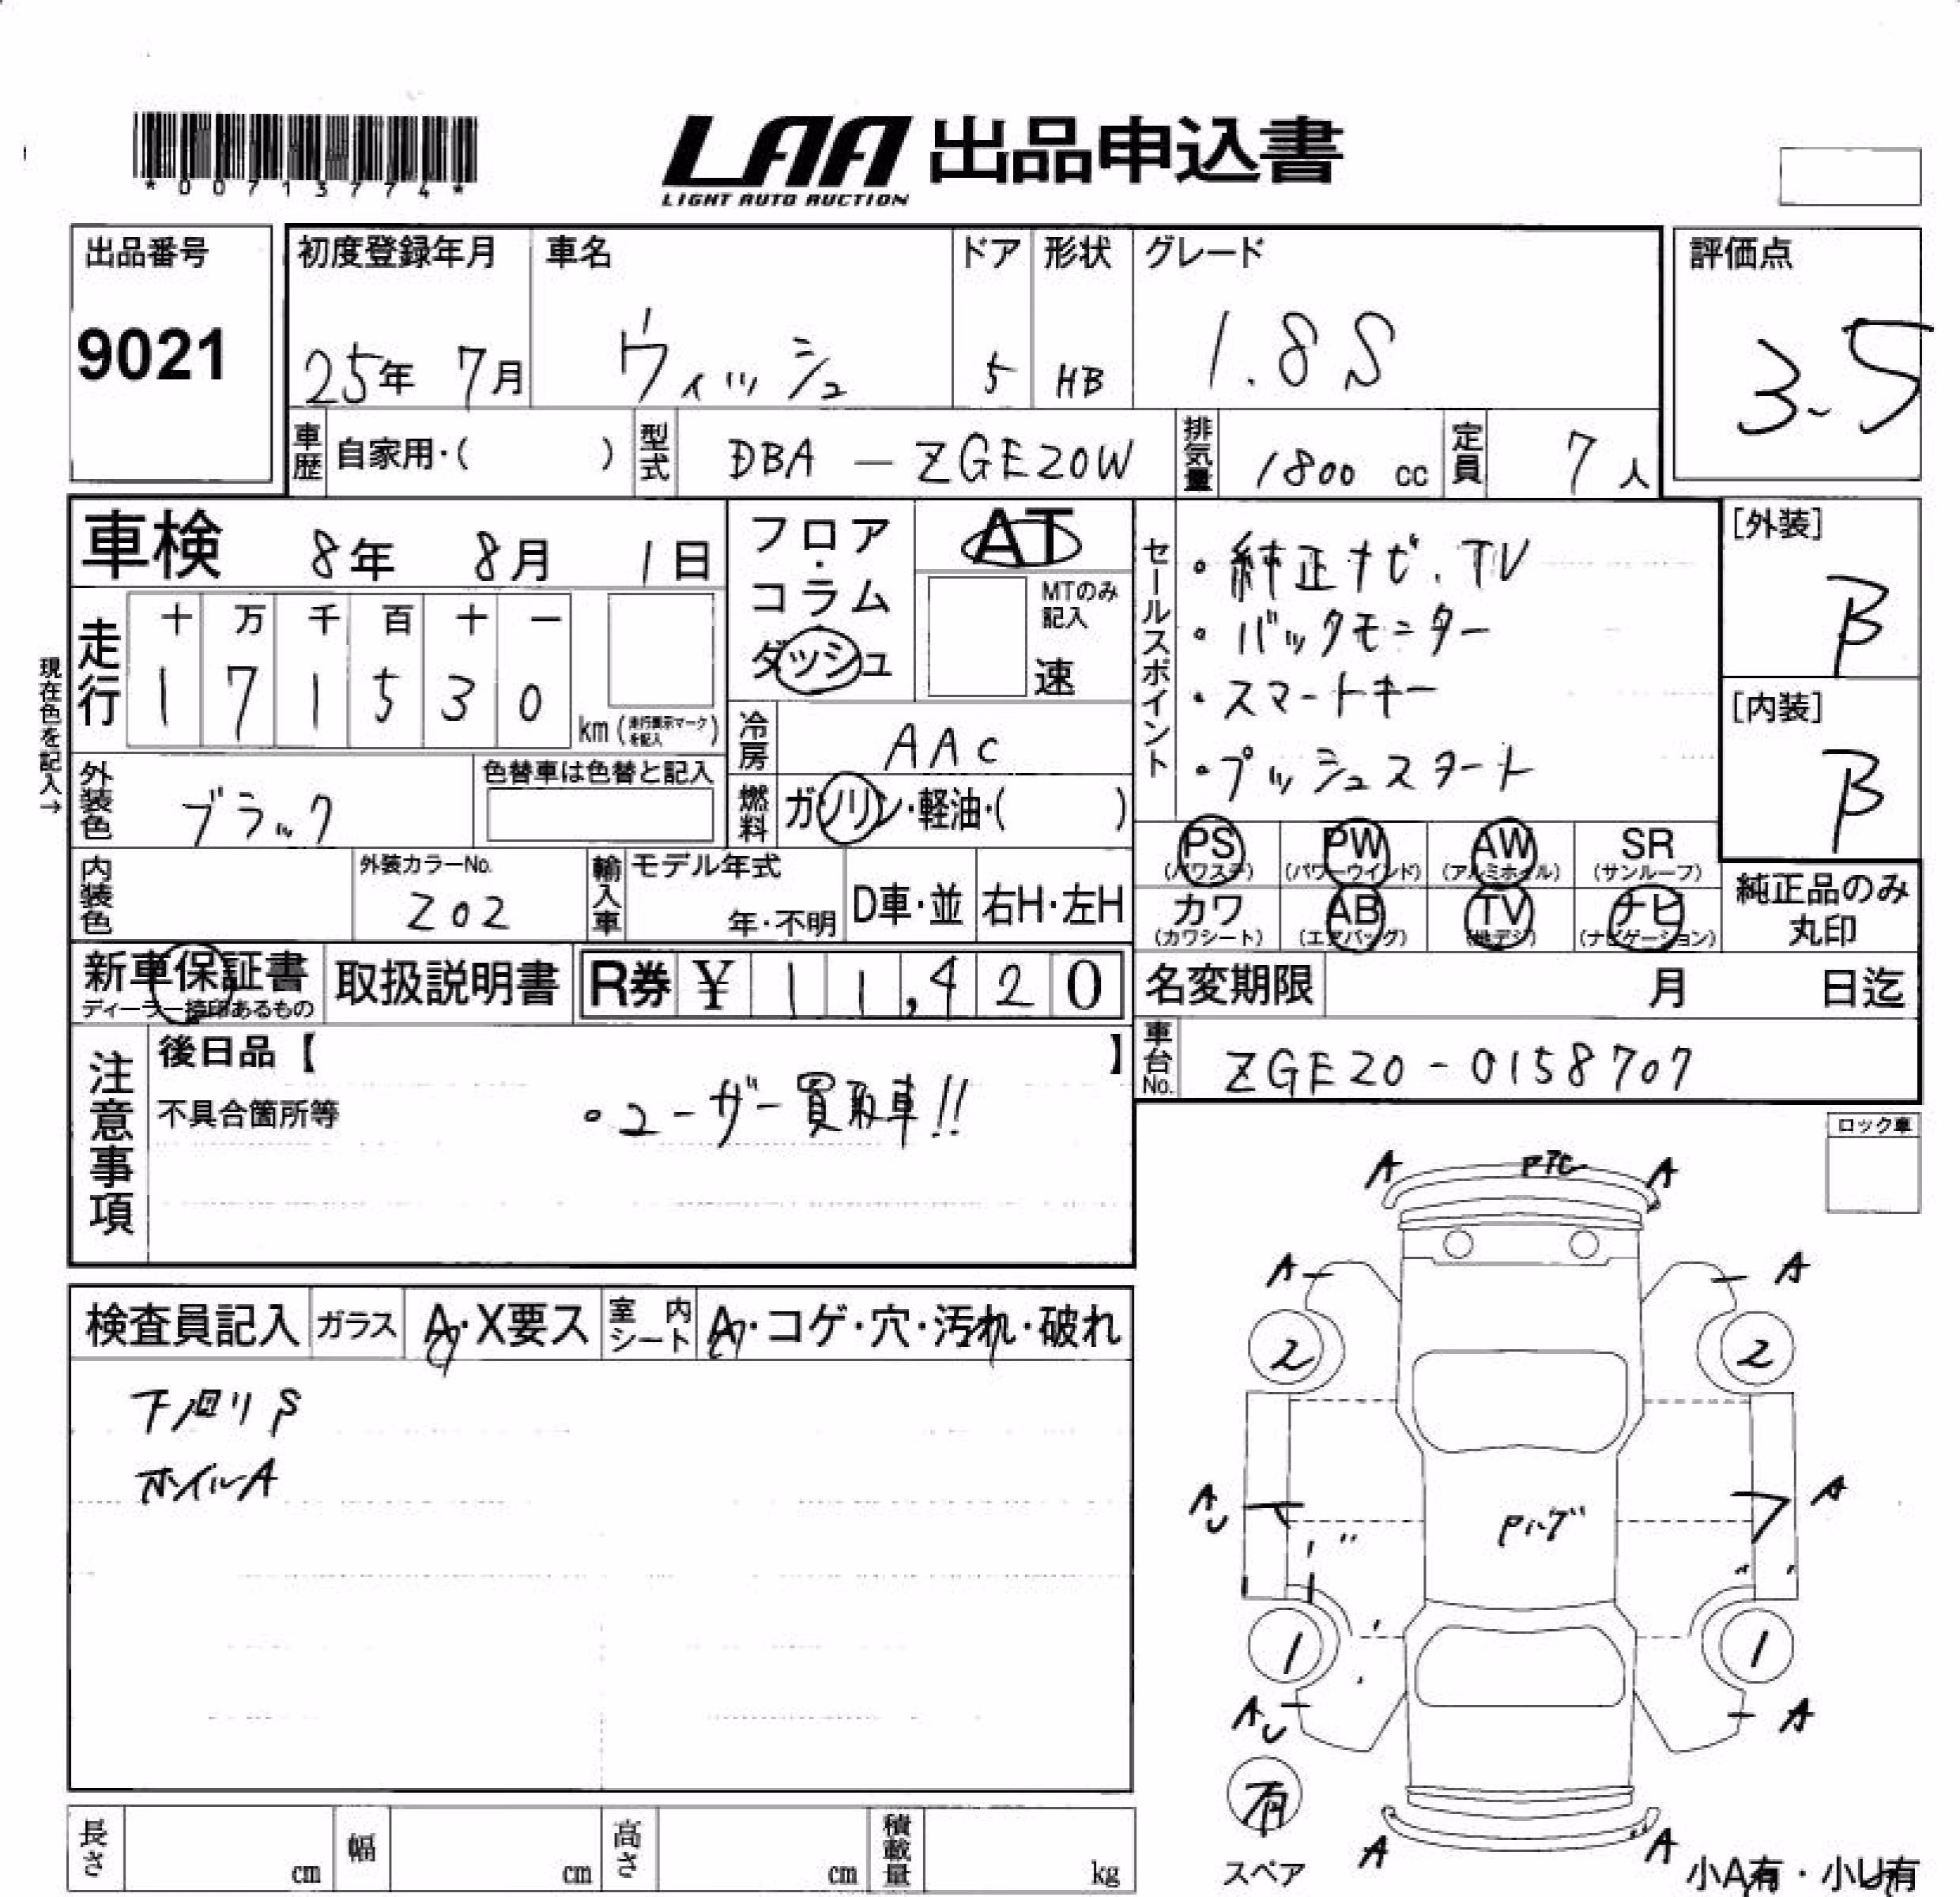 *00713774*
LAA 出品申込書
LIGHT AUTO AUCTION
出品番号 初度登録年月 車名 ドア 形状 グレード 評価点
9021 25年 7月 ウィッシュ 5 HB 1.8S 3.5
車歴 自家用・( ) 型式 DBA - ZGE20W 排気量 1800 cc 定員 7人
車検 8年 8月 1日 フロア・コラム ダッシュ AT
MTのみ記入 速
セールスポイント
・純正ナビ、TV
・バックモニター
・スマートキー
・プッシュスタート
[外装]
B
[内装]
B
現在色を記入→
走行 十 万 千 百 十 一
1 7 1 5 3 0 km (走行表示マークを記入)
冷房 AAC
外装色 ブラック 色替車は色替と記入
燃料 ガソリン・軽油・( )
PS (パワステ) PW (パワーウインド) AW (アルミホイル) SR (サンルーフ)
カワ (カワシート) AB (エアバッグ) TV (地デジ) ナビ (ナビゲーション)
純正品のみ
丸印
内装色 外装カラーNo. 202 輸入車 モデル年式 年・不明 D車・並 右H・左H
新車保証書 取扱説明書 R券 ¥ 11,420 名変期限 月 日迄
ディーラー捺印あるもの
車台No. ZGE20-0158707
注意事項 後日品【 】
不具合箇所等 ・ユーザー買取車!!
ロック車
検査員記入 ガラス A・X要ス 室内シート A・コゲ・穴・汚れ・破れ
下回りS
ホイルA
A A
A A
2 2
AU A
A
1 1
AU A
有
スペア
A A
小A有・小U有
長さ cm 幅 cm 高さ cm 積載量 kg